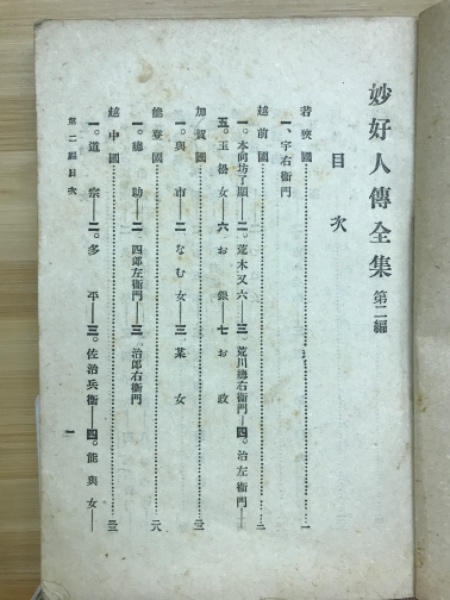 妙好人傳全集 第二編
目次
若狹國……一
一、宇右衞門
越前國……二
一。本向坊了顯——二。荒木又六——三。荒川總右衞門——四。治左衞門——
五。玉松女——六 お銀——七 お政
加賀國
一。與市——二 なむ女——三 某女
能登國……二八
一。總助——二 四郎左衞門——三 治郎右衞門
越中國
一。道宗——二。多平——三。佐治兵衞——四。能與女——
第二編目次 一